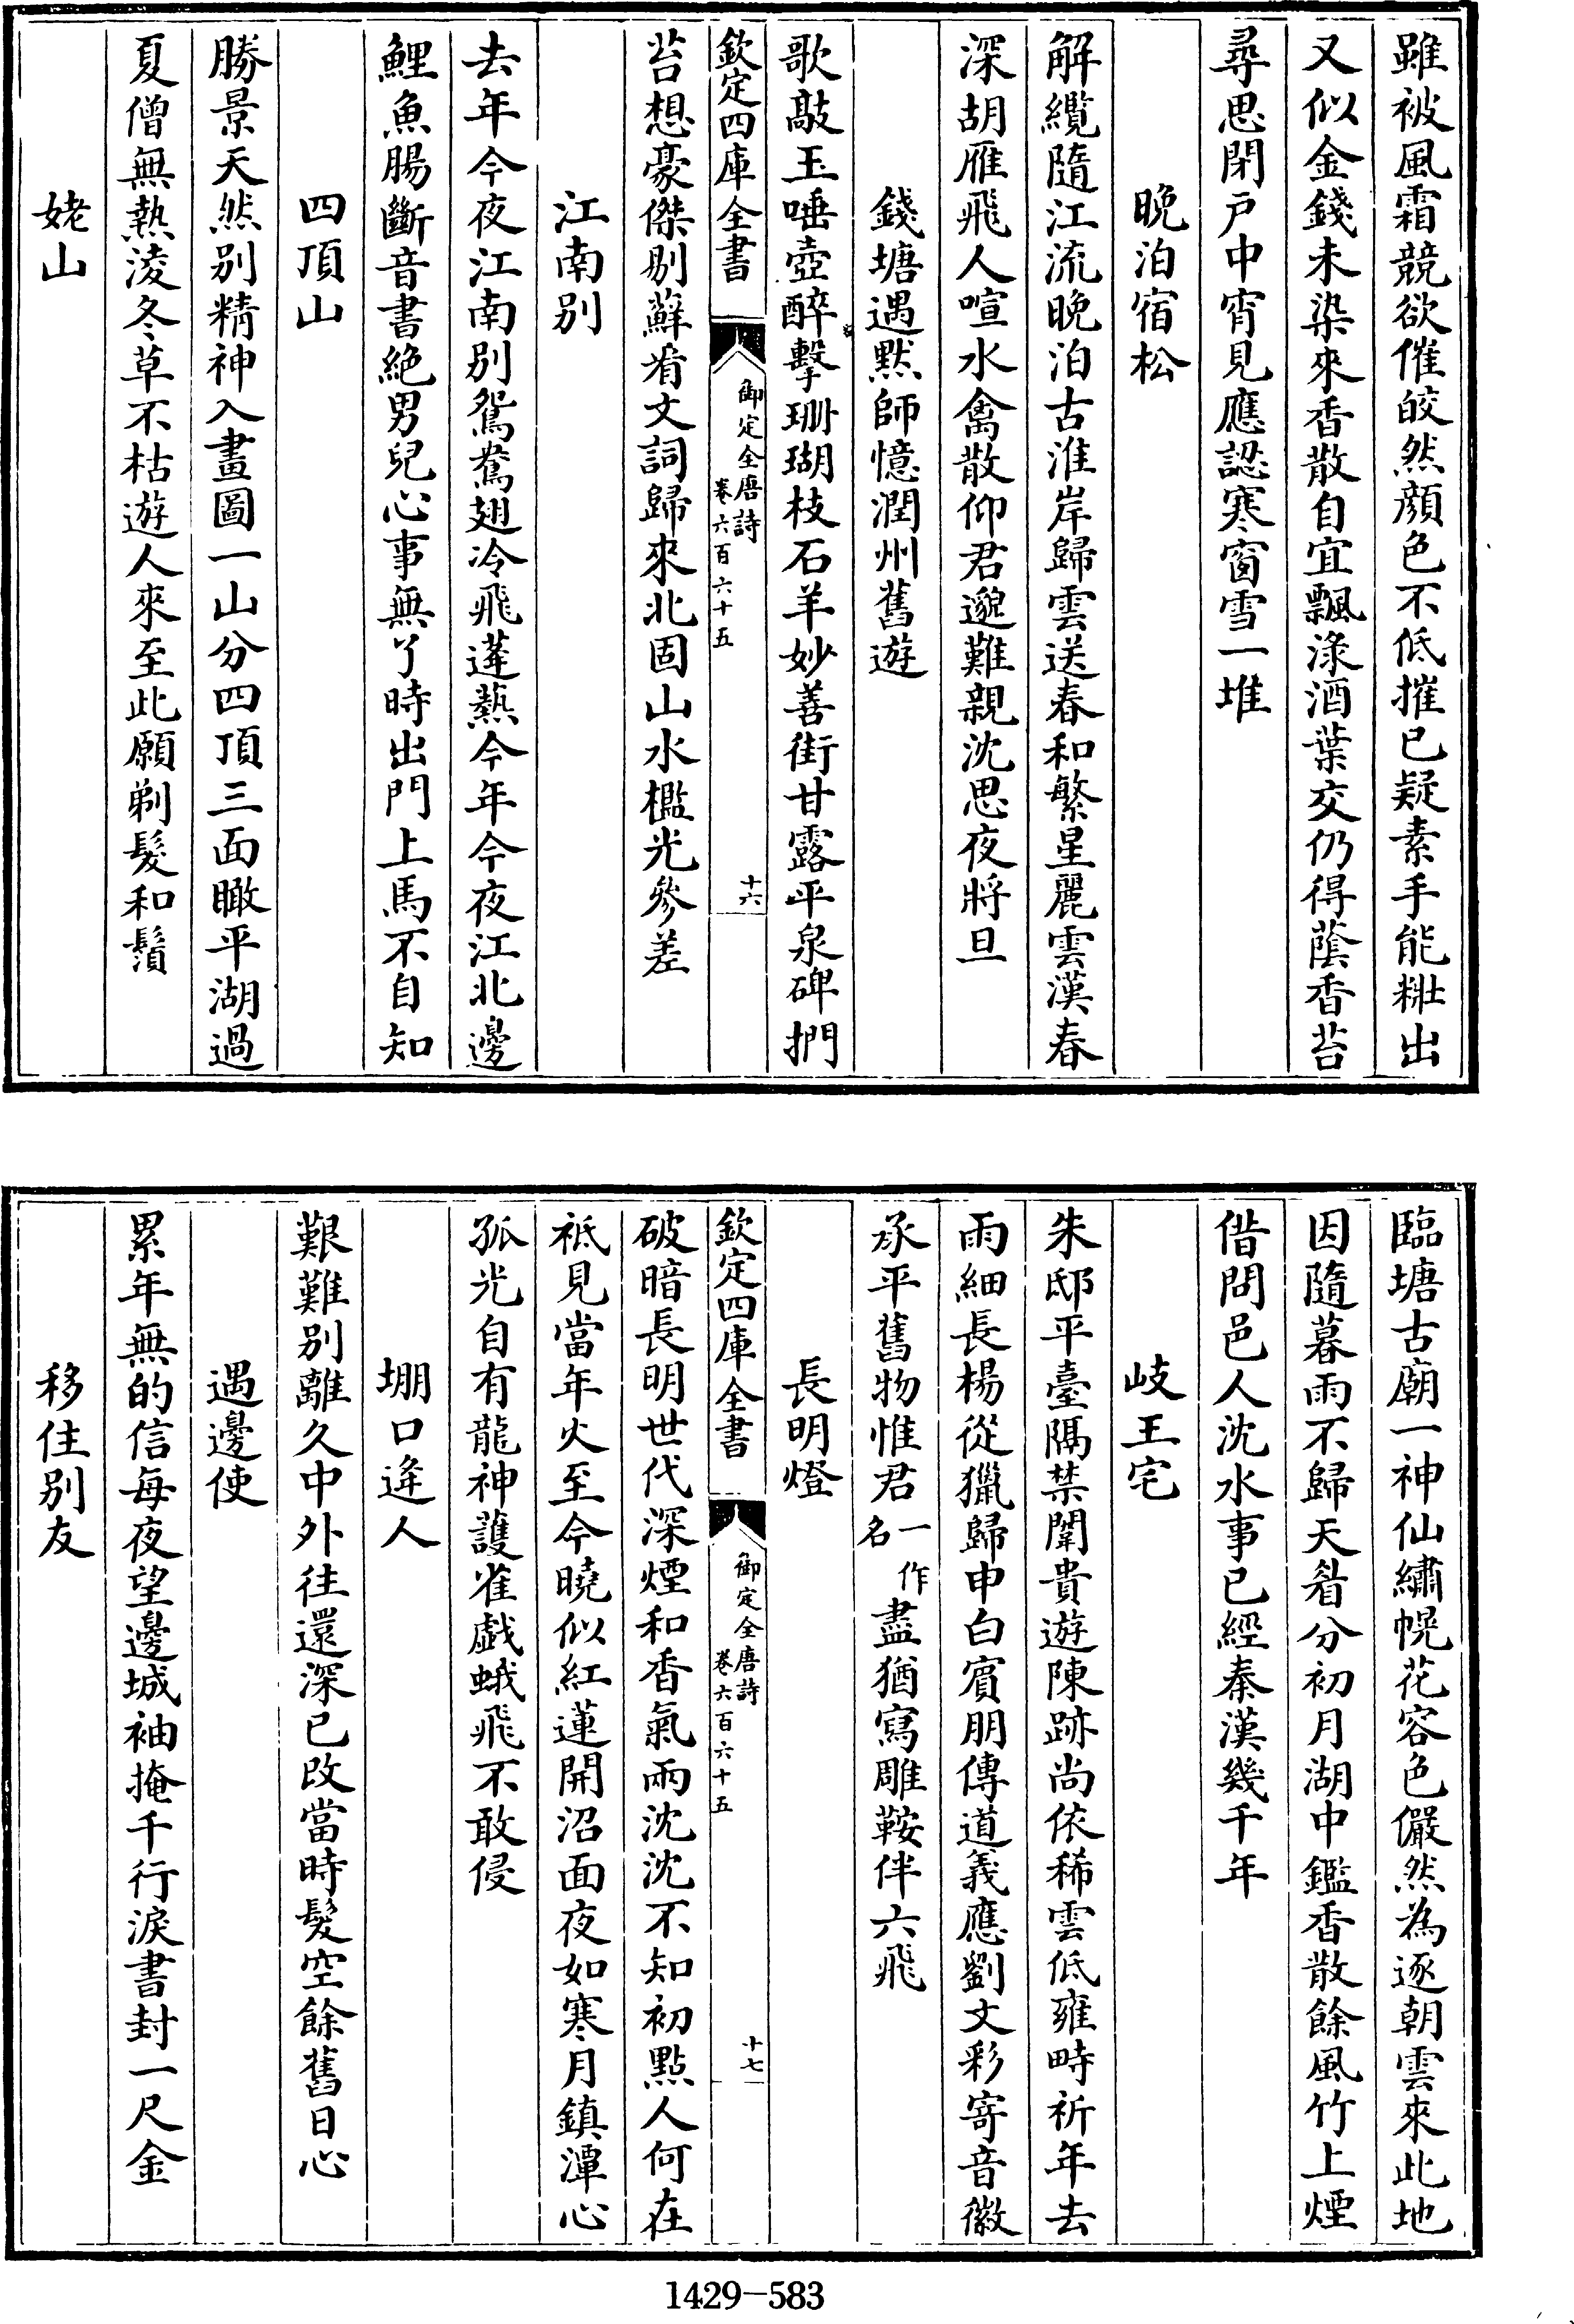 雖被風霜競欲催皎然顔色不低摧已疑素手能粧出
又似金錢未染來香散自宜飄渌酒葉交仍得蔭香苔
尋思閉户中宵見應認寒窗雪一堆
晚泊宿松
解纜隨江流晚泊古淮岸歸雲送春和繁星麗雲漢春
深胡雁飛人喧水禽散仰君邈難親沈思夜將旦
錢塘遇默師憶潤州舊遊
歌敲玉唾壺醉擊珊瑚枝石羊妙善街甘露平泉碑捫
欽定四庫全書
御定全唐詩
卷六百六十五
十六
苔想豪傑剔蘚看文詞歸來北固山水檻光參差
江南别
去年今夜江南别鴛鴦翅冷飛蓬爇今年今夜江北邊
鯉魚腸斷音書絶男兒心事無了時出門上馬不自知
四頂山
勝景天然别精神入畫圖一山分四頂三面瞰平湖過
夏僧無熱凌冬草不枯遊人來至此願剃髮和鬚
姥山
臨塘古廟一神仙繡幌花容色儼然為逐朝雲來此地
因隨暮雨不歸天眉分初月湖中鑑香散餘風竹上煙
借問邑人沈水事已經秦漢幾千年
岐王宅
朱邸平臺隔禁闈貴遊陳跡尚依稀雲低雍畤祈年去
雨細長楊從獵歸申白賓朋傳道義應劉文彩寄音徽
承平舊物惟君一作名盡猶寫雕鞍伴六飛
長明燈
欽定四庫全書
御定全唐詩
卷六百六十五
十七
破暗長明世代深煙和香氣兩沈沈不知初點人何在
祗見當年火至今曉似紅蓮開沼面夜如寒月鎮潭心
孤光自有龍神護雀戲蛾飛不敢侵
堋口逢人
艱難别離久中外往還深已改當時髮空餘舊日心
遇邊使
累年無的信每夜望邊城袖掩千行淚書封一尺金
移住别友
1429-583